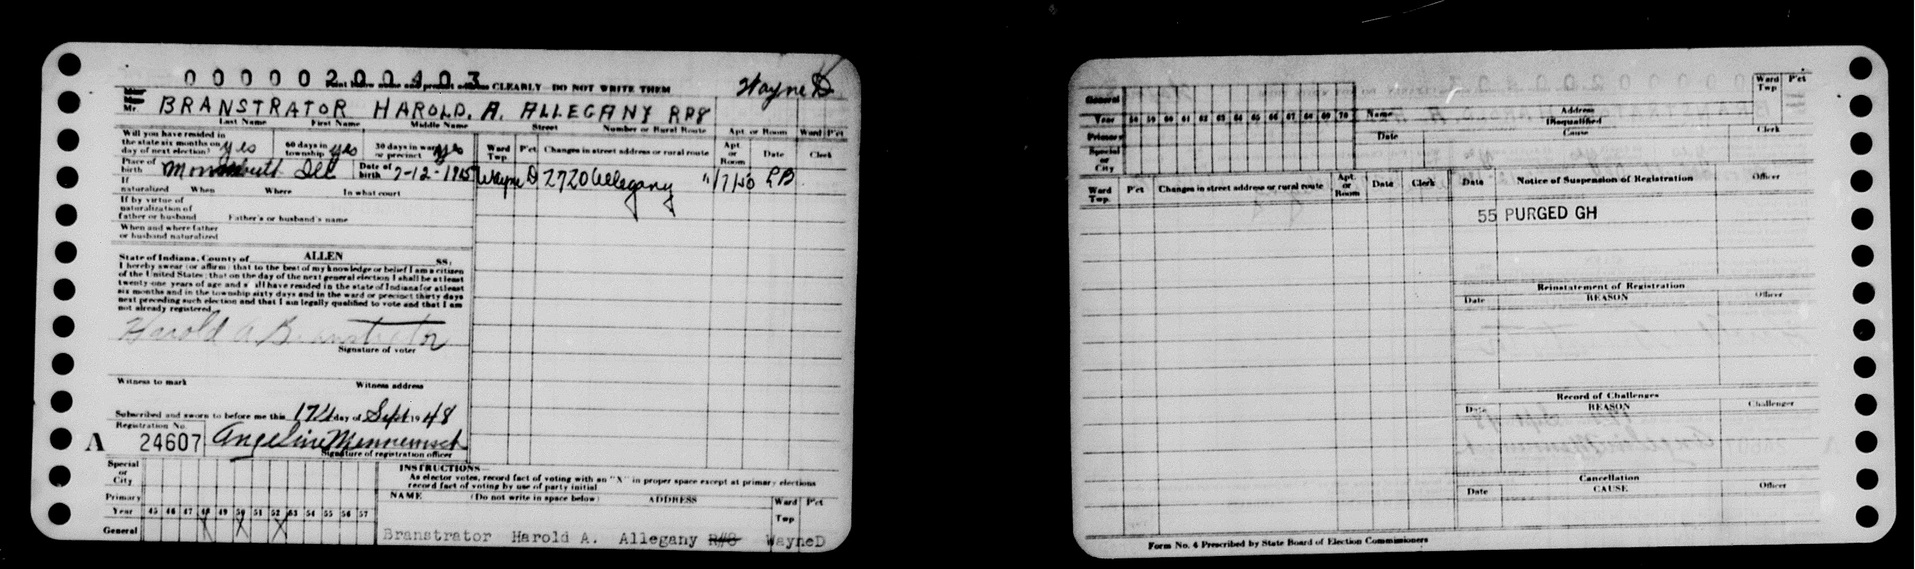 0 0 0 0 0 2 0 0 4 0 3
Print below name and present address CLEARLY—DO NOT WRITE THEM
Wayne D
Mr. BRANSTRATOR HAROLD. A. ALLEGANY RR8
Last Name First Name Middle Name Street Number or Rural Route Apt or Room Ward P'ct
Will you have resided in the state six months on day of next election? yes 60 days in township yes 30 days in ward or precinct yes
Ward Twp P'ct Changes in street address or rural route Apt or Room Date Clerk
Place of birth Ill Date of birth 7-12-1915
Wayne D 2720 Allegany 1/7/53
If naturalized When Where In what court
If by virtue of naturalization of father or husband Father's or husband's name
When and where father or husband naturalized
State of Indiana, County of ALLEN SS:
I hereby swear (or affirm) that to the best of my knowledge or belief I am a citizen
of the United States; that on the day of the next general election I shall be at least
twenty-one years of age and will have resided in the state of Indiana for at least
six months and in the township sixty days and in the ward or precinct thirty days
next preceding such election and that I am legally qualified to vote and that I am
not already registered.
Harold A. Branstrator
Signature of voter
Witness to mark Witness address
Subscribed and sworn to before me this 17th day of Sept 1948
Registration No.
A 24607 Angeline
Signature of registration officer
Special or City
Primary
Year 45 46 47 48 49 50 51 52 53 54 55 56 57
General X X X
INSTRUCTIONS—
As elector votes, record fact of voting with an "X" in proper space except at primary elections
record fact of voting by use of party initial
NAME (Do not write in space below) ADDRESS Ward Twp P'ct
Branstrator Harold A. Allegany R#8 WayneD
General
Year 58 59 60 61 62 63 64 65 66 67 68 69 70
Primary
Special or City
Name Address Ward Twp P'ct
Date Disqualified Cause Clerk
Ward Twp. P'ct Changes in street address or rural route Apt. or Room Date Clerk
Date Notice of Suspension of Registration Officer
55 PURGED GH
Reinstatement of Registration
Date REASON Officer
Record of Challenges
Date REASON Challenger
Cancellation
Date CAUSE Officer
Form No. 4 Prescribed by State Board of Election Commissioners